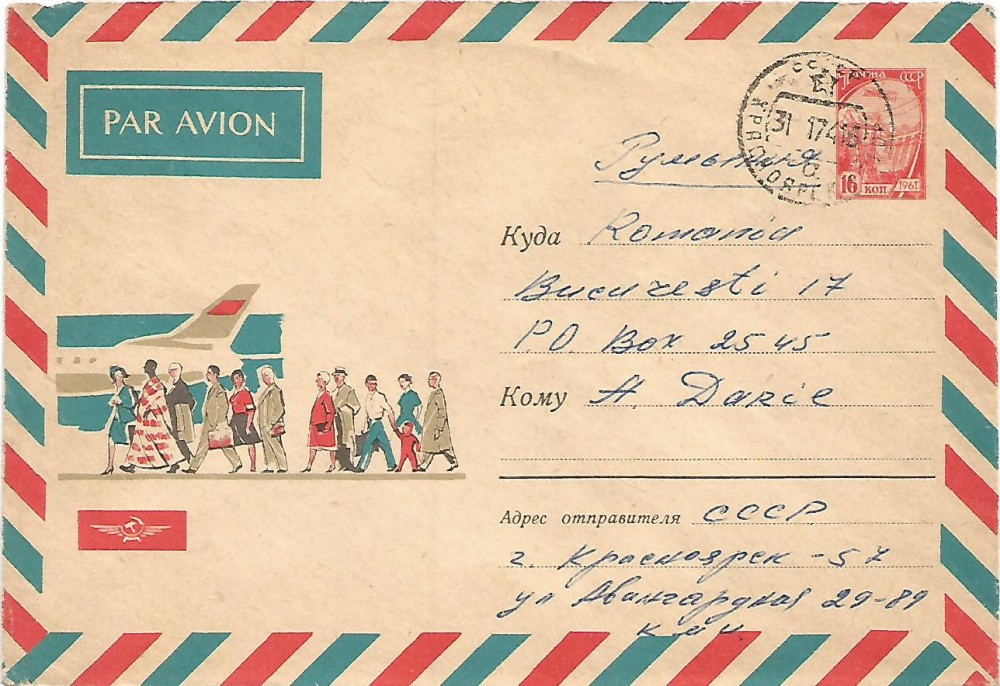 PAR AVION
СССР
КРАСНОЯРСК
31 1 74 16
ПОЧТА СССР
16 КОП 1961
Румыния
Куда Romania
Bucuresti 17
P.O. Box 2545
Кому A. Darie
Адрес отправителя СССР
г. Красноярск-57
ул Авангардная 29-89